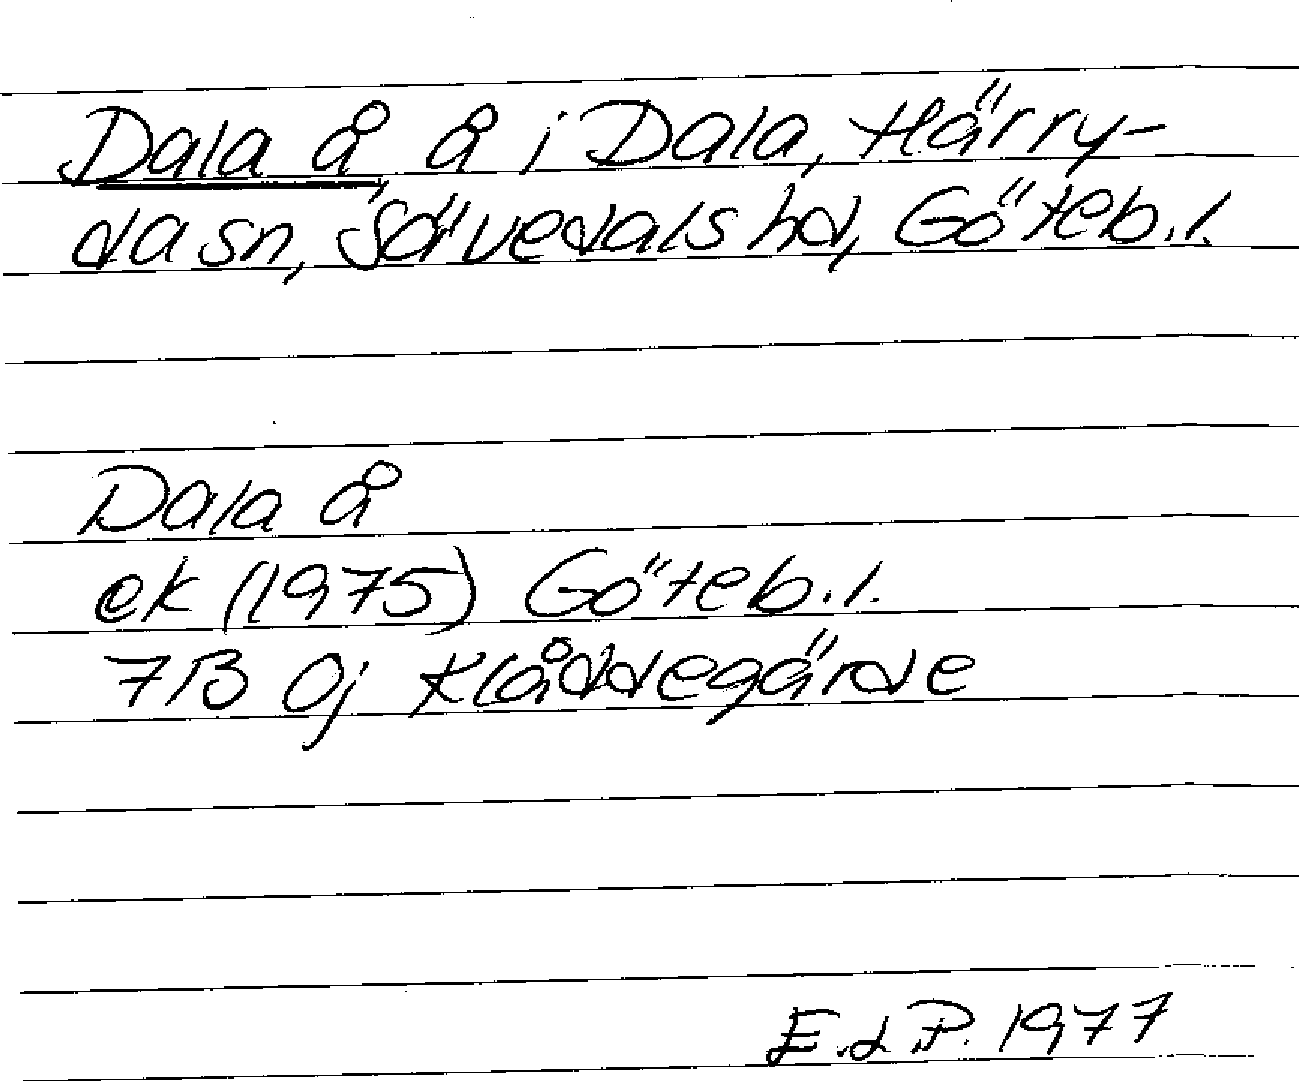 Dala å å i Dala, Härry-
da sn, Sävedals hd, Göteb.l.
Dala å
ek (1975) Göteb.l.
7B 0j Klåddegärde
E.d P. 1977